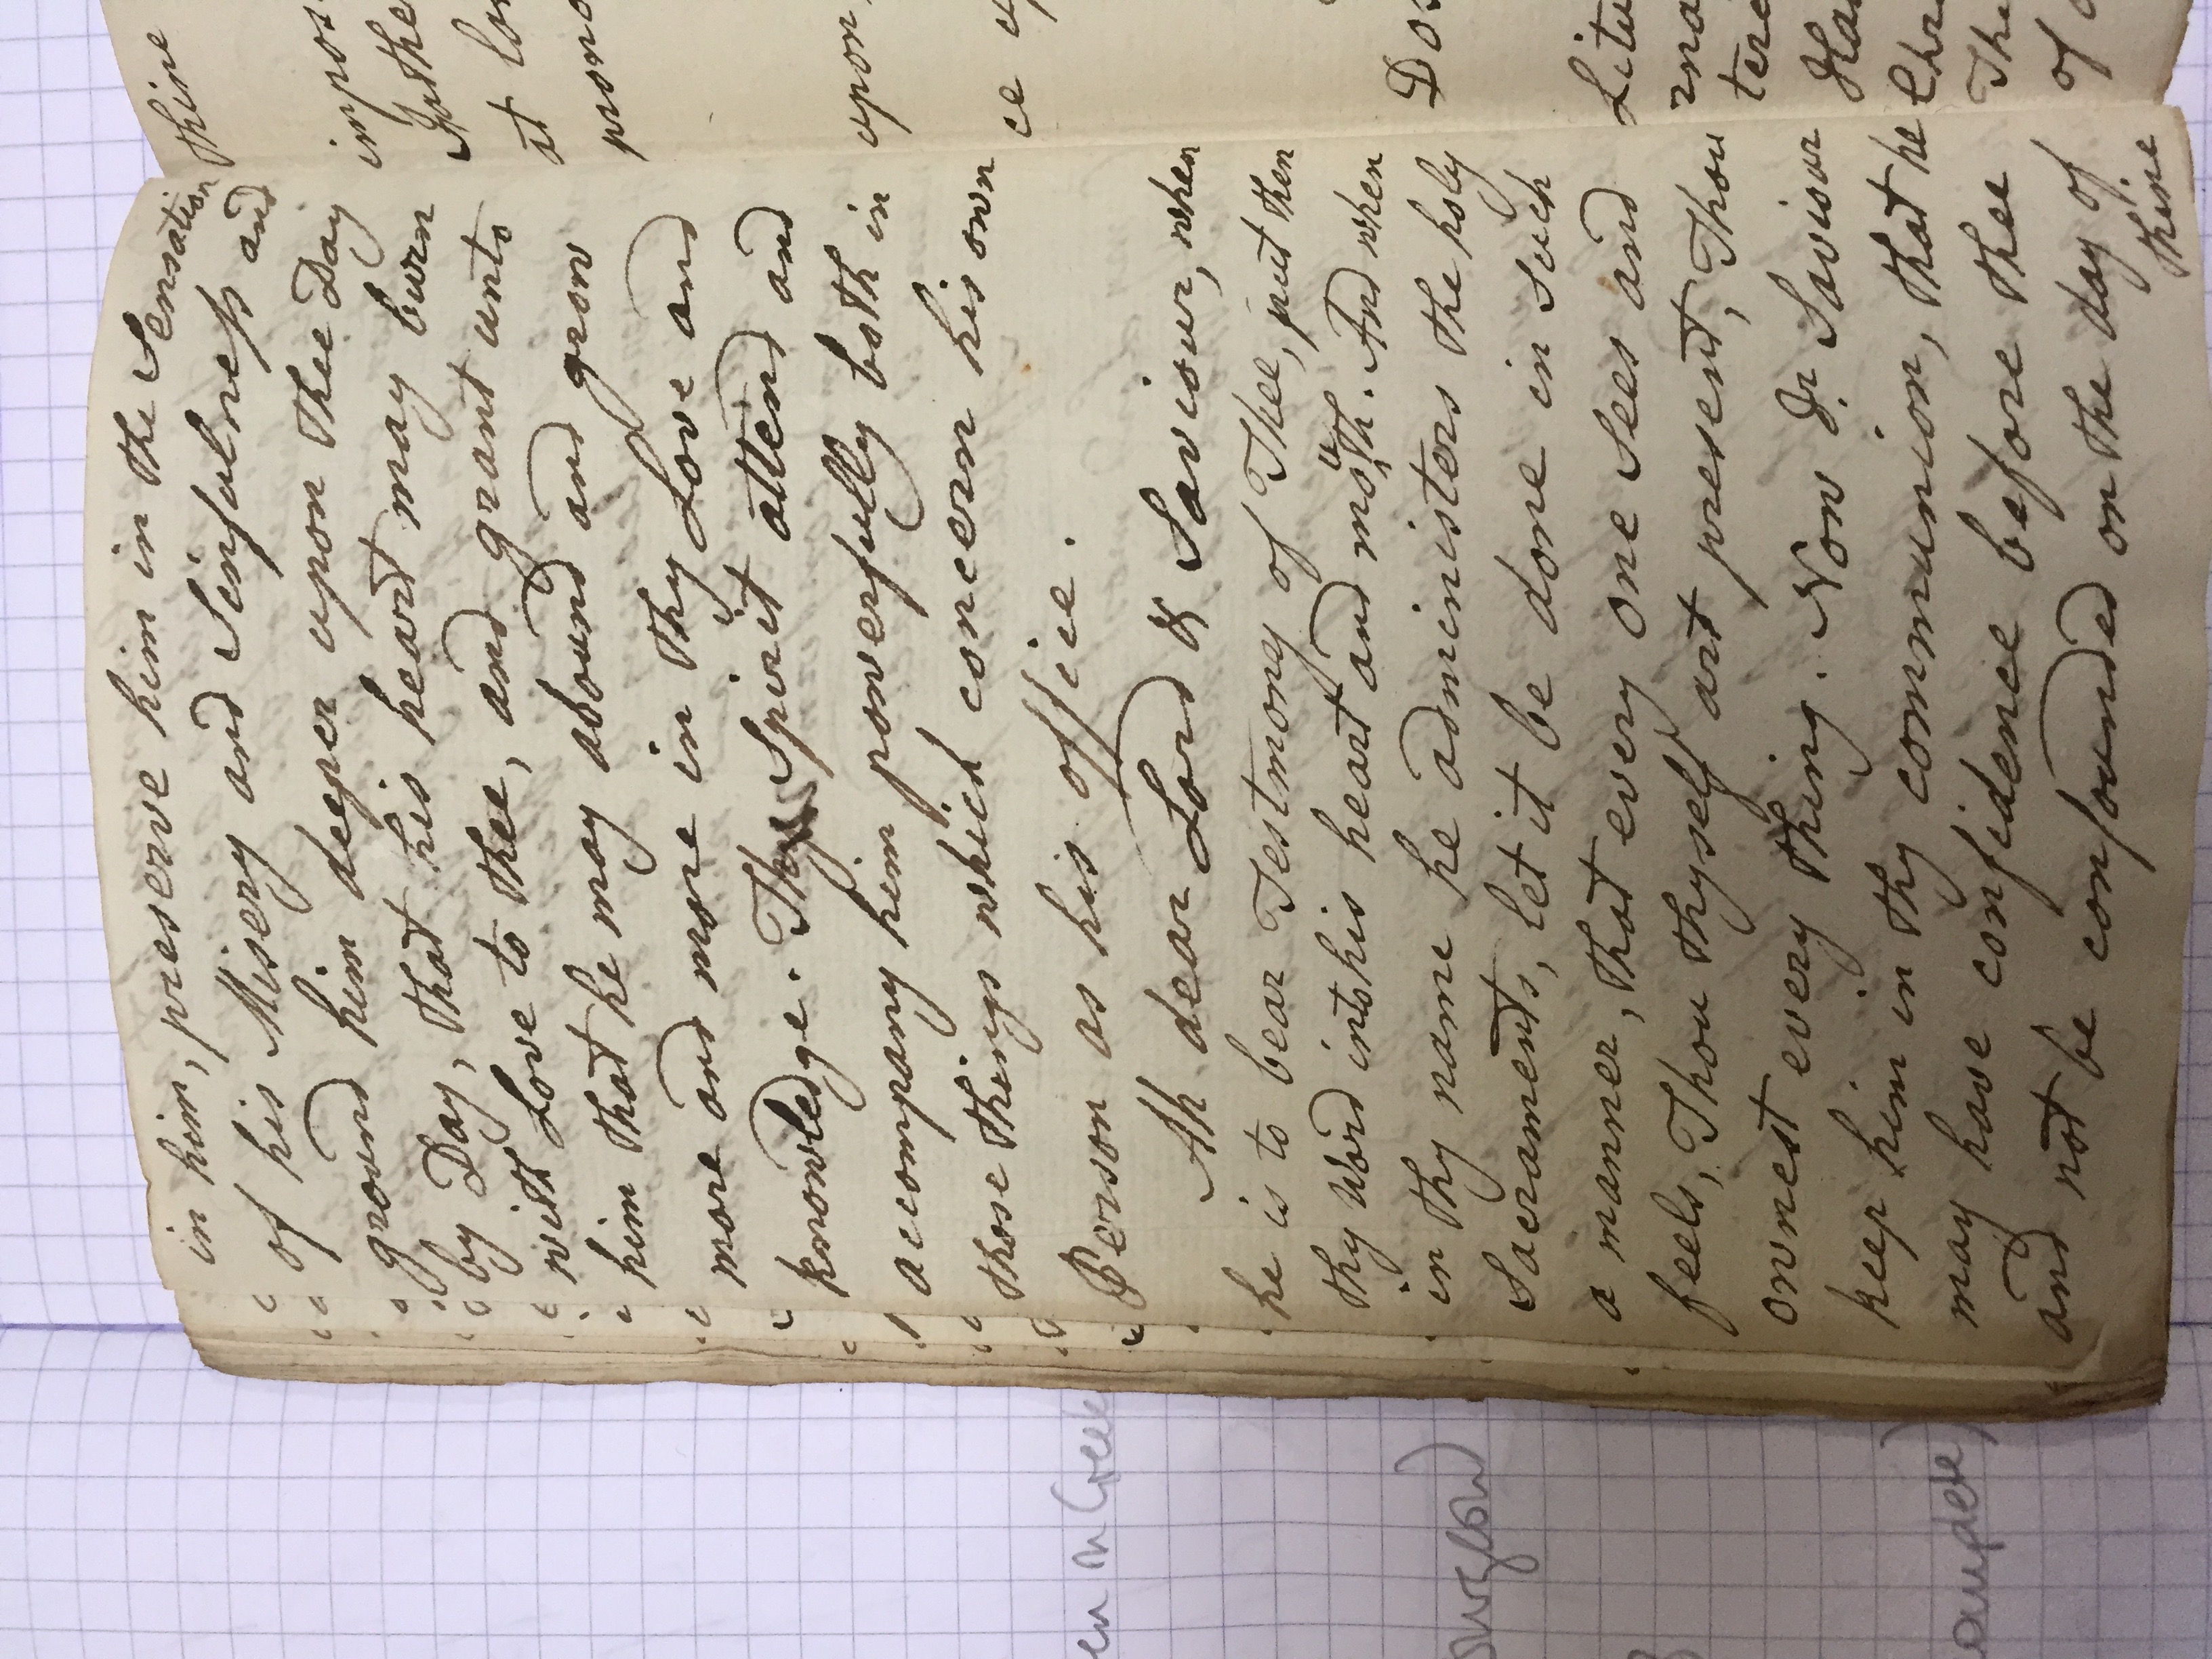 in him, preserve him in the Sensation
of his Misery and Sinfulness and
ground him deeper upon Thee Day
by Day, that his heart may burn
with Love to thee, and grant unto
him that he may abound and grow
more and more in Thy Love and
knowledge. Thy Spirit attend and
accompany him powerfully both in
those things which concern his own
Person as his office.
Ah dear Lord & Saviour, when
he is to bear Testmony of Thee, put then
thy Word into his heart and mouth. And when
in thy name he administers the holy
Sacraments, let it be done in such
a manner, that every one sees and
feels, Thou thyself art present, Thou
ownest every thing. Now dr. Saviour
keep him in thy communion, that he
may have confidence before thee
and not be confounded on the day of
thine
thine
at
upon
of